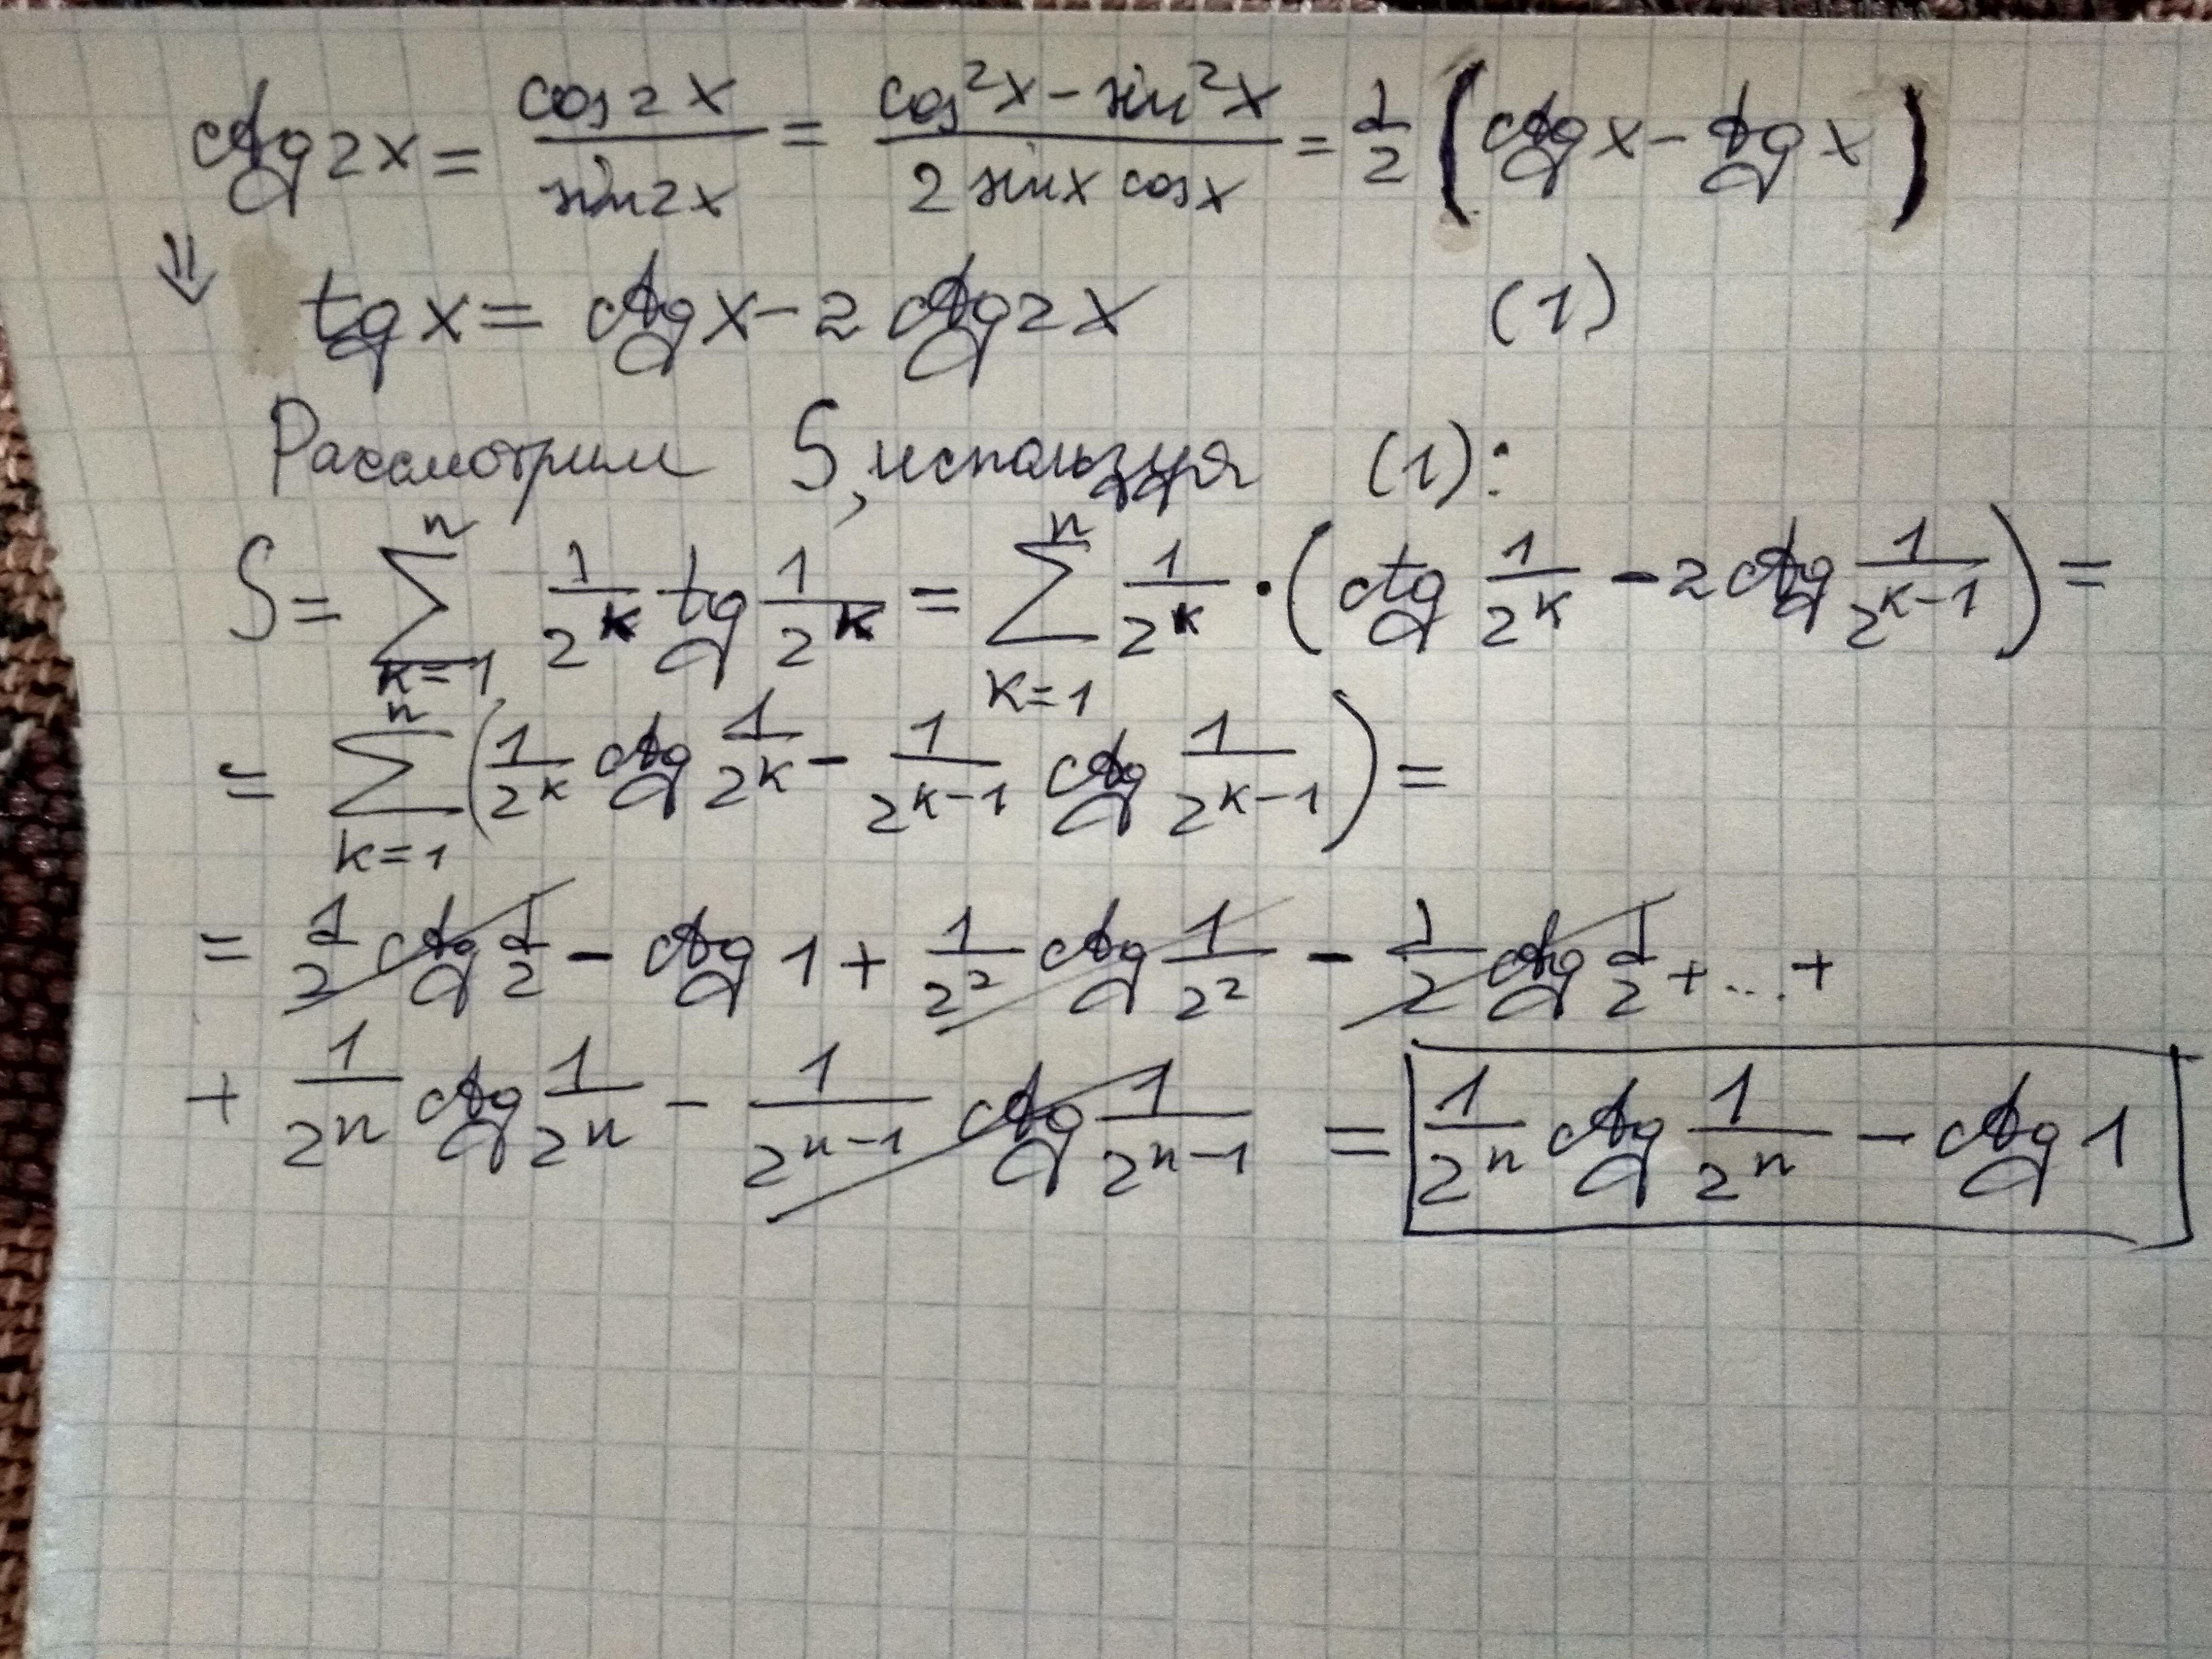 ctg 2x = cos 2x / sin 2x = (cos²x - sin²x) / (2 sin x cos x) = 1/2 (ctg x - tg x)
⇓ tg x = ctg x - 2 ctg 2x (1)
Рассмотрим S, используя (1):
S = ∑_{k=1}^{n} 1/2^k tg 1/2^k = ∑_{k=1}^{n} 1/2^k · (ctg 1/2^k - 2 ctg 1/2^{k-1}) =
= ∑_{k=1}^{n} (1/2^k ctg 1/2^k - 1/2^{k-1} ctg 1/2^{k-1}) =
= 1/2 ctg 1/2 - ctg 1 + 1/2² ctg 1/2² - 1/2 ctg 1/2 + ... +
+ 1/2^n ctg 1/2^n - 1/2^{n-1} ctg 1/2^{n-1} = 1/2^n ctg 1/2^n - ctg 1